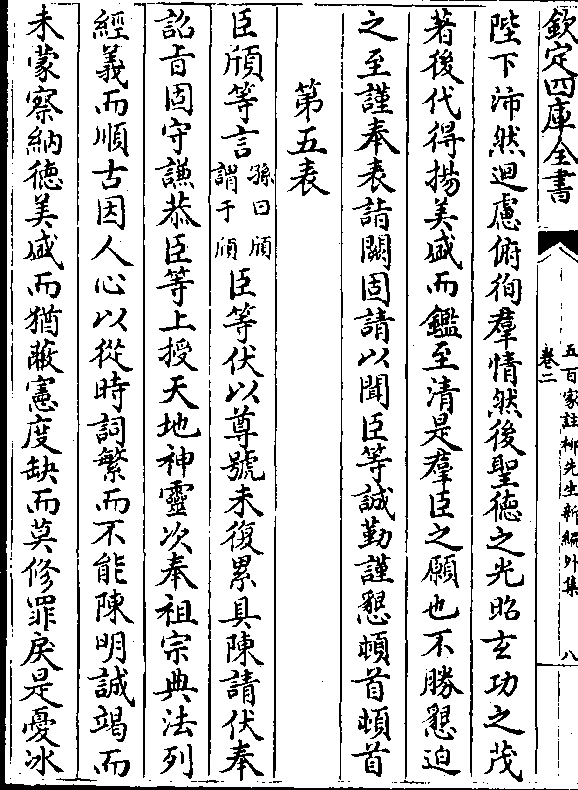 欽定四庫全書
五百家註柳先生新編外集
卷二
八
陛下沛然迴慮俯徇羣情然後聖德之光昭玄功之茂
著後代得揚美盛而鑑至清是羣臣之願也不勝懇迫
之至謹奉表請闕固請以聞臣等誠勤謹懇頓首頓首
第五表
臣頎等言孫曰頎謂于頎臣等伏以尊號未復累具陳請伏奉
詔旨固守謙恭臣等上授天地神靈次奉祖宗典法列
經義而順古因人心以從時詞繁而不能陳明誠竭而
未蒙察納徳美盛而猶蔽憲度缺而莫修罪戾是憂冰